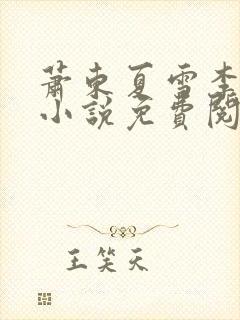 萧东夏雪李
小说免费阅
王笑天